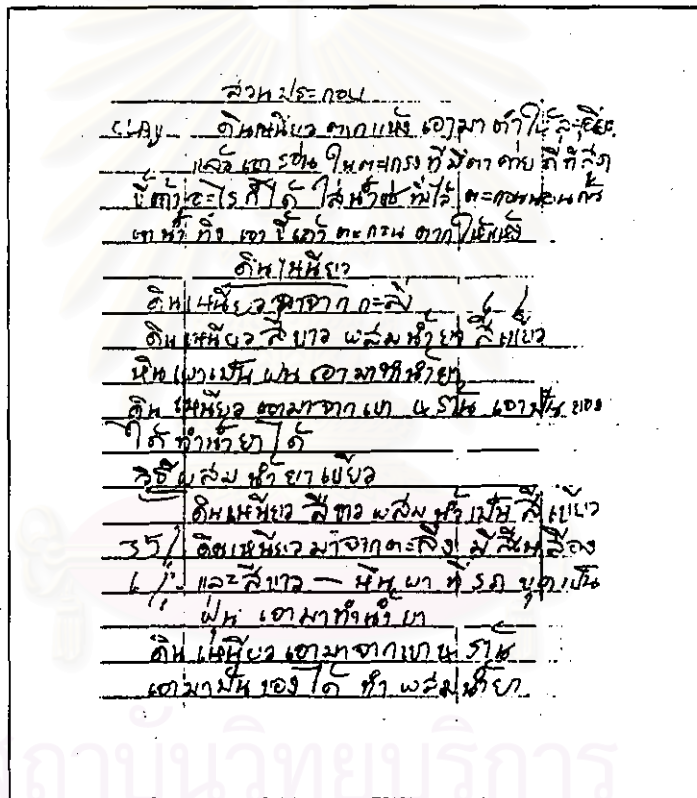 ส่วนประกอบ
CLAY ดินเหนียว ตากแห้ง เอามา ตำให้ละเอียด
แล้ว เอาร่อน ในตะแกรง ที่ มีตา ค่าย ถี่ที่สุด
ขี้เถ้าอะไร ก็ได้ ใส่น้ำแช่ ทิ้งไว้ ตะกอนนอนก้น
เทน้ำ ทิ้ง เอาขี้เถ้า ตะกอน ตากให้แห้ง
ดินเหนียว
ดินเหนียว มาจาก
ดินเหนียว สีขาว ผสม น้ำยา สีเขียว
หินผาเป็นฝุ่น เอามาทำน้ำยา
ดินเหนียว เอามาจาก เขา เอาปั้น ของ
ได้ ทำน้ำยาได้
วิธีผสมน้ำยาเขียว
ดินเหนียว สีขาว ผสม น้ำ เป็น สีเขียว
35% ดินเหนียว มาจาก มีสีเหลือง
และสีขาว — หินผา ที่ รถ ขุด เป็น
ฝุ่น เอามาทำน้ำยา
ดินเหนียว เอามาจาก เขา
เอามาปั้น ของได้ ทำ ผสม น้ำยา
สถาบันวิทยบริการ